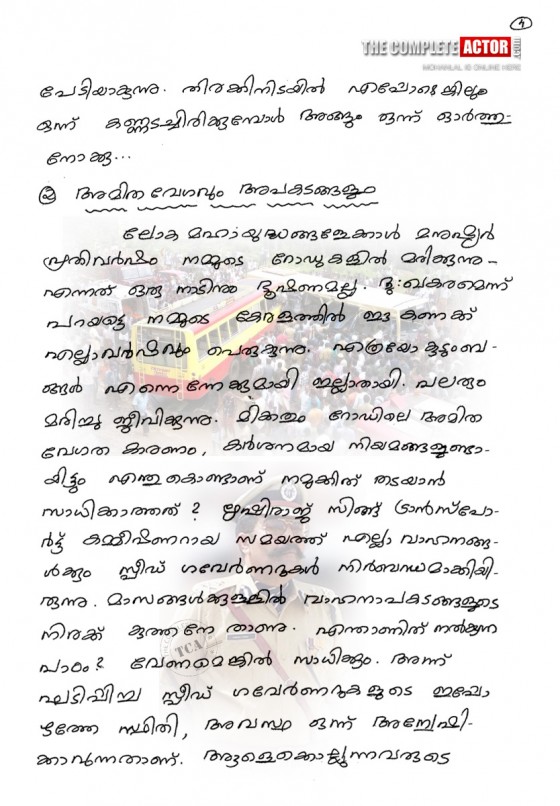 4
THE COMPLETE ACTOR
MOHANLAL IS ONLINE HERE
പേടിയാകുന്നു. തിരക്കിനിടയിൽ എപ്പോഴെങ്കിലും
ഒന്ന് കണ്ണടച്ചിരിക്കുമ്പോൾ അങ്ങും ഒന്ന് ഓർത്തു-
നോക്കൂ...
② അമിത വേഗവും അപകടങ്ങളും
ലോക മഹായുദ്ധങ്ങളേക്കാൾ മനുഷ്യർ
പ്രതിവർഷം നമ്മുടെ റോഡുകളിൽ മരിക്കുന്നു -
എന്നത് ഒരു നാടിനും ഭൂഷണമല്ല. ദുഃഖകരമെന്ന്
പറയട്ടെ നമ്മുടെ കേരളത്തിൽ ഈ കണക്ക്
എല്ലാവർഷവും പെരുകുന്നു. എത്രയോ കുടുംബ-
ങ്ങൾ എന്നെന്നേക്കുമായി ഇല്ലാതായി. പലരും
മരിച്ചു ജീവിക്കുന്നു. മിക്കതും റോഡിലെ അമിത
വേഗത കാരണം, കർശനമായ നിയമങ്ങളുണ്ടാ-
യിട്ടും എന്തുകൊണ്ടാണ് നമുക്കിത് തടയാൻ
സാധിക്കാത്തത്? ഋഷിരാജ് സിങ്ങ് ട്രാൻസ്പോ-
ർട്ട് കമ്മീഷണറായ സമയത്ത് എല്ലാ വാഹനങ്ങ-
ൾക്കും സ്പീഡ് ഗവേർണറുകൾ നിർബന്ധമാക്കിയി-
രുന്നു. മാസങ്ങൾക്കുള്ളിൽ വാഹനാപകടങ്ങളുടെ
നിരക്ക് കുത്തനേ താണു. എന്താണിത് നൽകുന്ന
പാഠം? വേണമെങ്കിൽ സാധിക്കും. അന്ന്
ഘടിപ്പിച്ച സ്പീഡ് ഗവേർണറുകളുടെ ഇപ്പോ
ഴത്തെ സ്ഥിതി, അവസ്ഥ ഒന്ന് അന്വേഷി-
ക്കാവുന്നതാണ്. ആളെക്കൊല്ലുന്നവരുടെ
TCA